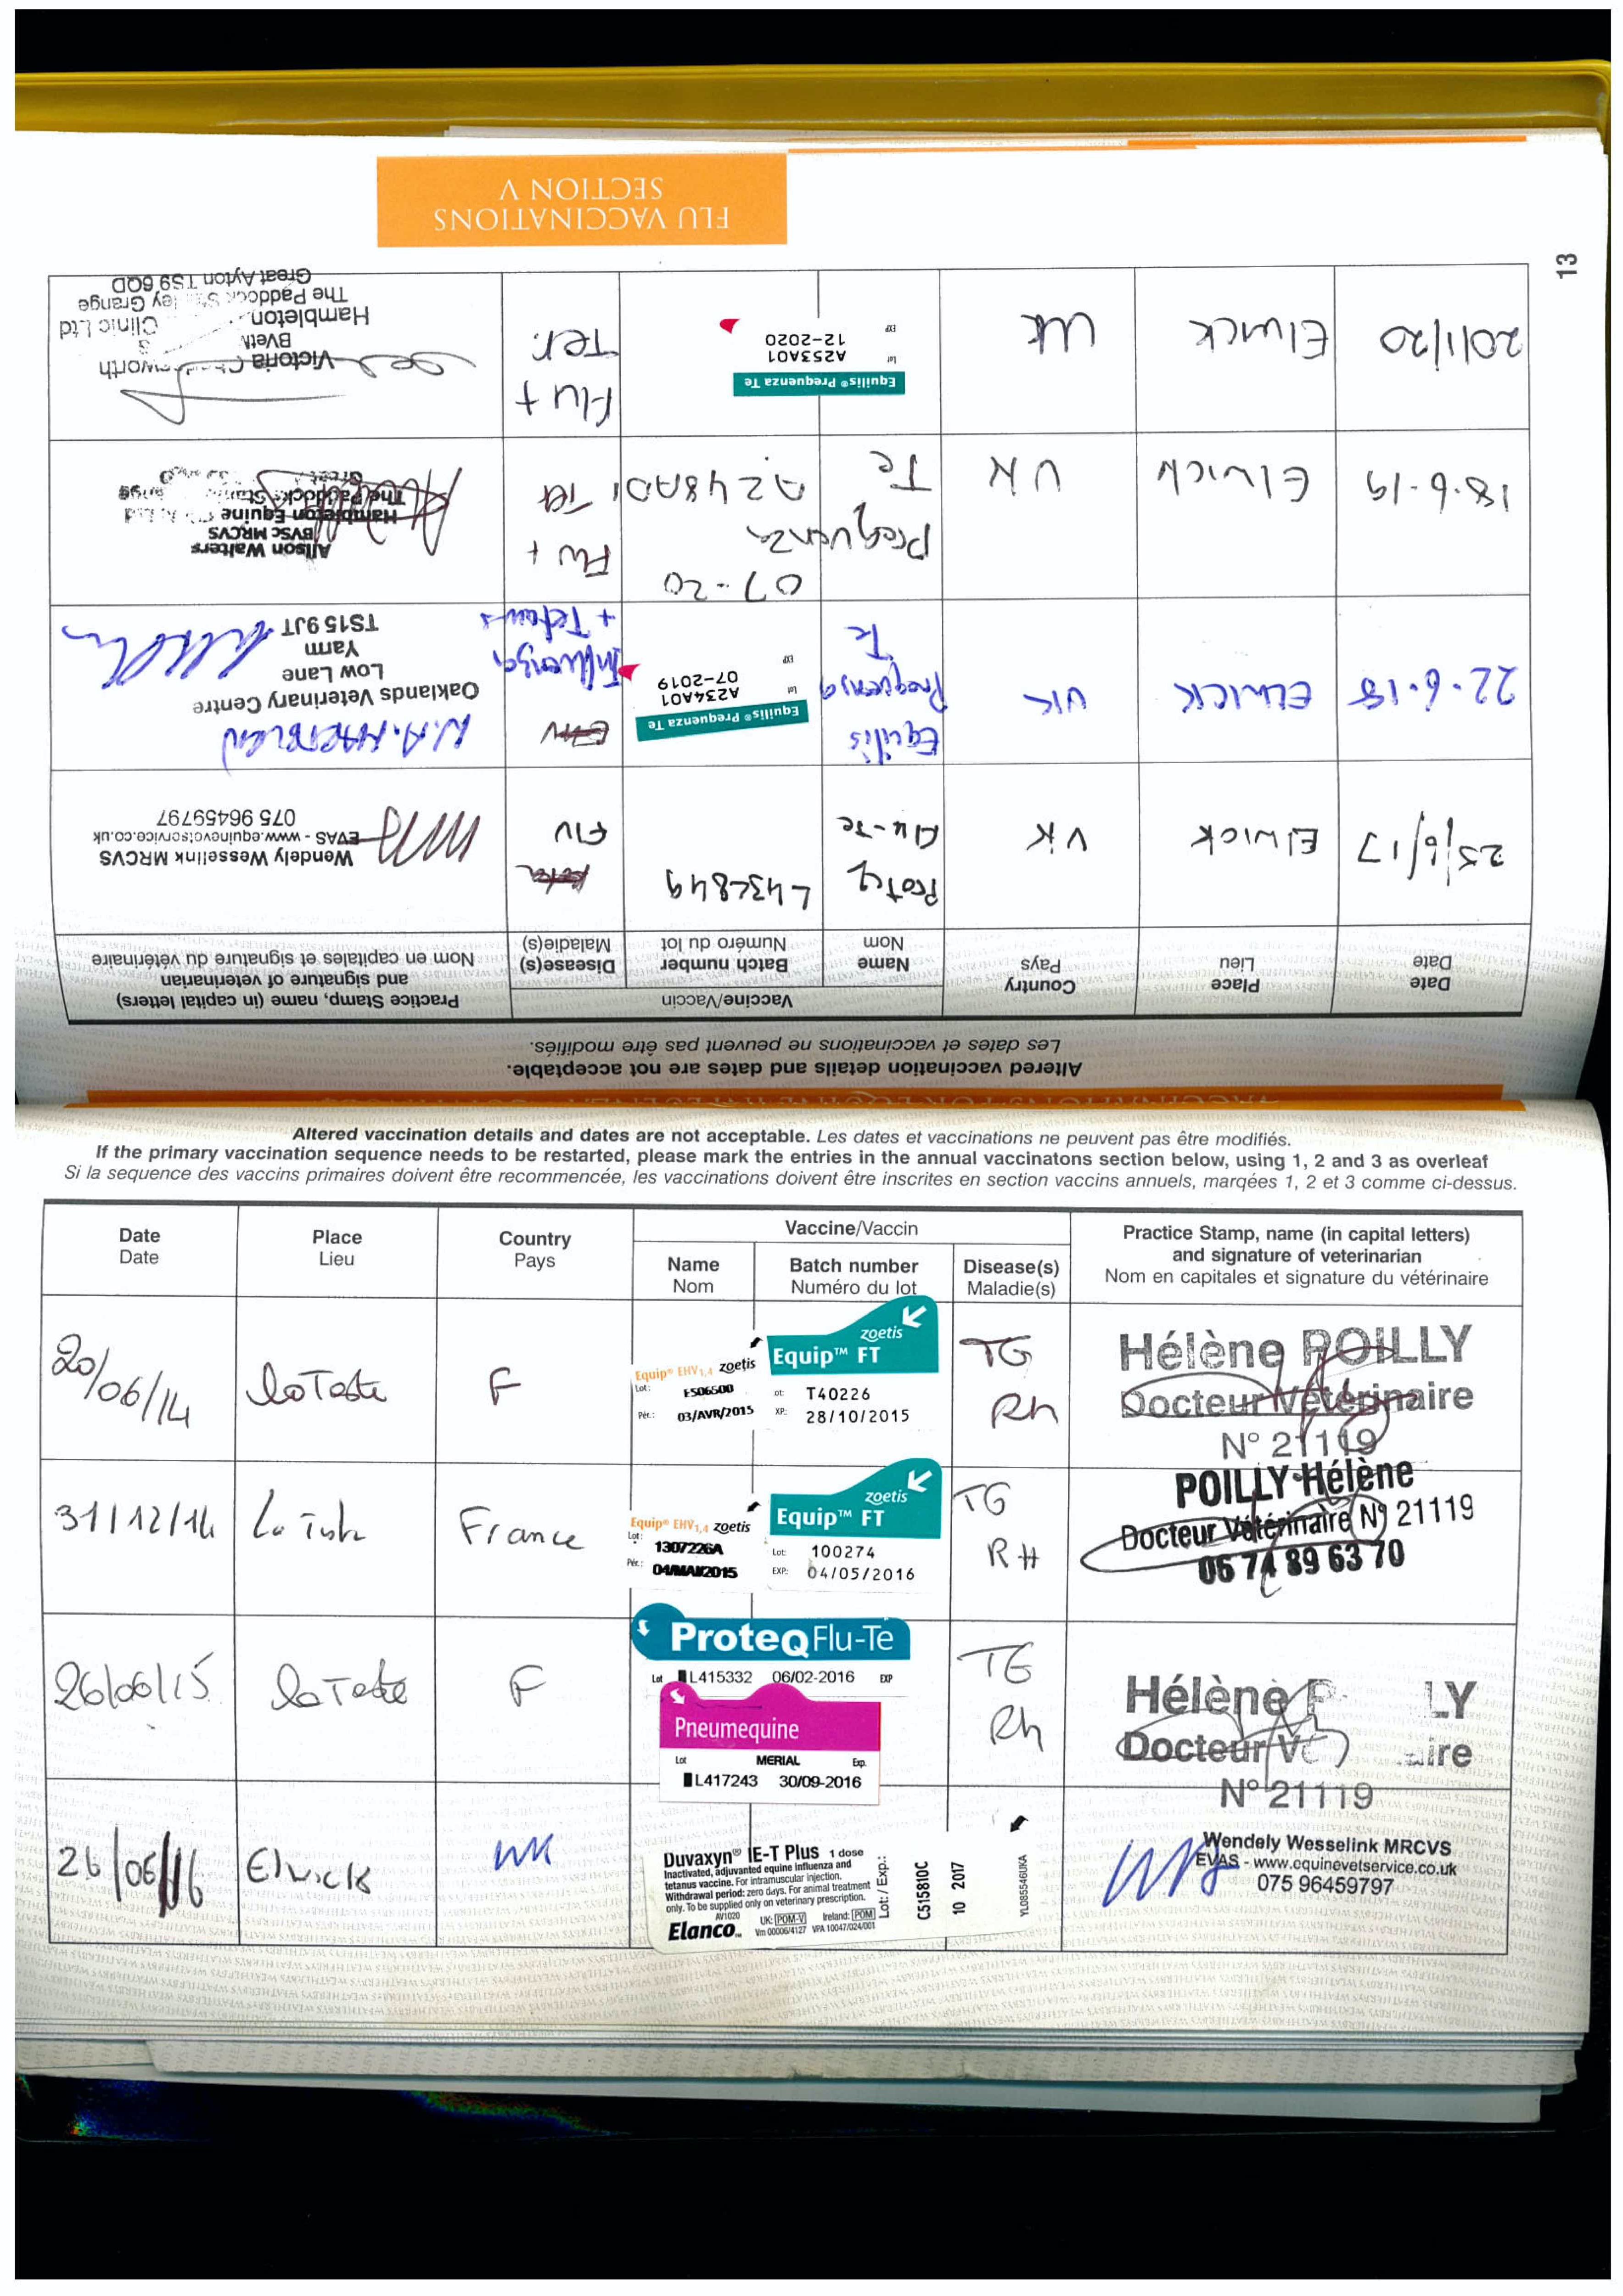 Altered vaccination details and dates are not acceptable. Les dates et vaccinations ne peuvent pas être modifiés.
If the primary vaccination sequence needs to be restarted, please mark the entries in the annual vaccinatons section below, using 1, 2 and 3 as overleaf
Si la sequence des vaccins primaires doivent être recommencée, les vaccinations doivent être inscrites en section vaccins annuels, marqées 1, 2 et 3 comme ci-dessus.
Date
Date
Place
Lieu
Country
Pays
Vaccine/Vaccin
Name
Nom
Batch number
Numéro du lot
Disease(s)
Maladie(s)
Practice Stamp, name (in capital letters)
and signature of veterinarian
Nom en capitales et signature du vétérinaire
20/06/14
La Teste
F
Equip® EHV1,4 zoetis
Lot:
Pér.: 03/AVR/2015
zoetis
Equip™ FT
T40226
28/10/2015
TG
Rh
Hélène POILLY
Docteur Vétérinaire
N° 21119
31/12/14
La Teste
France
Equip® EHV1,4 zoetis
Lot:
1307226A
Pér.: 04/MAI/2015
zoetis
Equip™ FT
Lot: 100274
EXP: 04/05/2016
TG
RH
POILLY Hélène
Docteur Vétérinaire N° 21119
06 74 89 63 70
26/06/15
La Teste
F
ProteqFlu-Te
Lot L415332 06/02-2016 EXP
Pneumequine
Lot MERIAL Exp.
L417243 30/09-2016
TG
Rh
Hélène P LY
Docteur Vé aire
N° 21119
26/06/16
Elwick
UK
Duvaxyn® IE-T Plus 1 dose
Inactivated, adjuvanted equine influenza and
tetanus vaccine. For intramuscular injection.
Withdrawal period: zero days. For animal treatment
only. To be supplied only on veterinary prescription.
AV1020
UK: POM-V Ireland: POM
Elanco™ Vm 00006/4127 VPA 10047/024/001
Lot./ Exp.:
C515810C
10 2017
YL085540UKA
Wendely Wesselink MRCVS
EVAS - www.equinevetservice.co.uk
075 96459797
Altered vaccination details and dates are not acceptable.
Les dates et vaccinations ne peuvent pas être modifiés.
Date
Date
Place
Lieu
Country
Pays
Vaccine/Vaccin
Name
Nom
Batch number
Numéro du lot
Disease(s)
Maladie(s)
Practice Stamp, name (in capital letters)
and signature of veterinarian
Nom en capitales et signature du vétérinaire
25/6/17
Elwick
UK
Proteq
Flu-Te
L432849
FLU
Wendely Wesselink MRCVS
EVAS - www.equinevetservice.co.uk
075 96459797
22.6.18
ELWICK
UK
Equilis
Prequenza
Te
Equilis® Prequenza Te
Lot A234A01
EXP 07-2019
EHV
Influenza
+ Tetanus
Oaklands Veterinary Centre
Low Lane
Yarm
TS15 9JT
18.6.19
Elwick
UK
Prequenza
Te
07-20
A248A01
Flu +
Tet
Alison Walters
BVSc MRCVS
Hambleton Equine
The Paddock
20/1/20
Elwick
UK
Equilis® Prequenza Te
Lot A253A01
EXP 12-2020
Flu +
Tet.
Victoria
Hambleton Clinic Ltd
The Paddock Grange
Great Ayton TS9 6QD
FLU VACCINATIONS
SECTION V
13